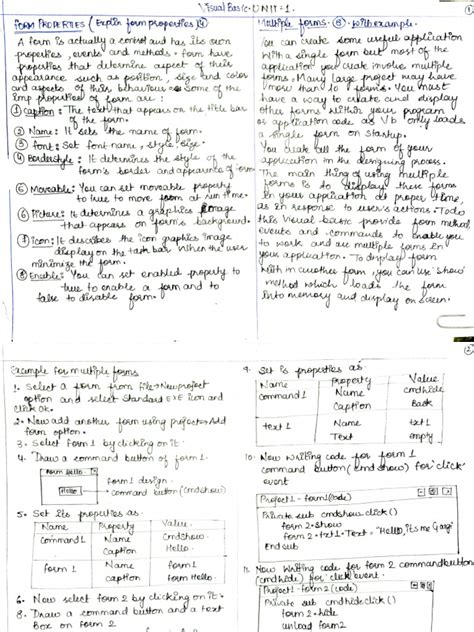 Visual Basic - UNIT-1.
①
FORM PROPERTIES / Explain form properties
A form is actually a control and has its own
properties, events and methods. form have
properties that determine aspect of their
appearance such as position, size and color
and aspects of their behaviour. Some of the
imp properties of form are:
① Caption: The text that appears on the title bar
of the form.
② Name: It sets the name of form.
③ font: Set font name, style, size.
④ Borderstyle: It determines the style of the
form's border and appearance of form
⑤ Movable: You can set movable property
to true to move form at run time.
⑥ Picture: It determines a graphics image
that appears on form's background.
⑦ icon: It describes the icon graphics image
display on the task bar when the user
minimize the form.
⑧ Enable: You can set enabled property
to true to enable a form and to
false to disable form.
Multiple forms. with example.
You can create some useful application
with a single form but most of the
application you create involve multiple
forms. Many large project may have
more than 10 forms. You must
have a way to create and display
other forms within your program
or application code as VB only loads
a single form on startup.
You create all the form of your
application in the designing process.
The main thing of using multiple
forms is to display these forms
in your application at proper time,
as in response to user's actions. Today
this visual basic provide form method
events and commands to enable you
to work and use multiple forms in
your application. To display form
with in another form, you can use 'show'
method which loads the form
into memory and display on screen.
②
Example for multiple forms
1. Select a form from file → New project
option and select Standard EXE icon and
click OK.
2. Now add another form using project → Add
form option.
3. Select form 1 by clicking on it.
4. Draw a command button of form 1.
form Hello
Hello
form 1 design.
command button (cmdshow)
5. Set its properties as:
Name Property Value
Command1 Name Cmdshow
Caption Hello
form 1 Name form 1
caption form Hello
6. Now select form 2 by clicking on it.
8. Draw a command button and a text
Box on form 2
9. Set is properties as
Property Value
command1 Name cmdhide
Caption Back
text 1 Name txt1
Text empty
10. Now writing code for form 1
command button (cmd show) for 'click'
event
Project1 - form1 (code)
Private sub cmdshow click ()
form 2. Show
form 2. txt1. Text = "Hello, its me Gargi"
End sub
11. Now writing code for form 2 command button
(cmdhide) for 'click' event.
Project1 - form 2 (code)
Private sub cmdhide click ()
form 2. hide
unload form2